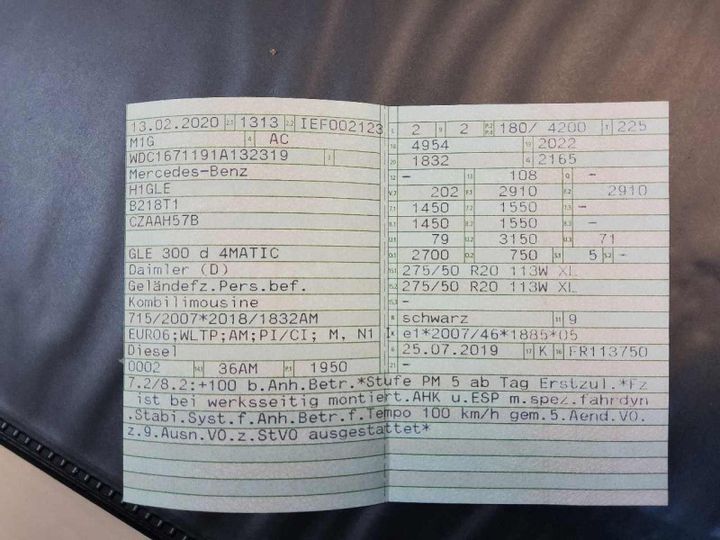 13.02.2020 2.1 1313 2.2 IEF002123
M1G 4 AC
WDC1671191A132319
Mercedes-Benz
H1GLE
B218T1
CZAAH57B
GLE 300 d 4MATIC
Daimler (D)
Geländefz.Pers.bef.
Kombilimousine
715/2007*2018/1832AM
EURO6;WLTP;AM;PI/CI; M, N1 I
Diesel
0002 36AM 1950
L 2 9 2 P.2 P.4 180/ 4200 T 225
18 4954 19 2022
20 1832 G 2165
12 - 13 108 Q -
V.7 202 F.1 2910 F.2 2910
7.1 1450 7.2 1550 7.3 -
8.1 1450 8.2 1550 8.3 -
U.1 79 U.2 3150 U.3 71
O.1 2700 O.2 750 S.1 5 S.2 -
15.1 275/50 R20 113W XL
15.2 275/50 R20 113W XL
15.3 -
R schwarz 11 9
K e1*2007/46*1885*05
6 25.07.2019 17 K 16 FR113750
21 -
7.2/8.2:+100 b.Anh.Betr.*Stufe PM 5 ab Tag Erstzul.*Fz
ist bei werksseitig montiert.AHK u.ESP m.spez.fahrdyn
.Stabi.Syst.f.Anh.Betr.f.Tempo 100 km/h gem.5.Aend.VO.
z.9.Ausn.VO.z.StVO ausgestattet*